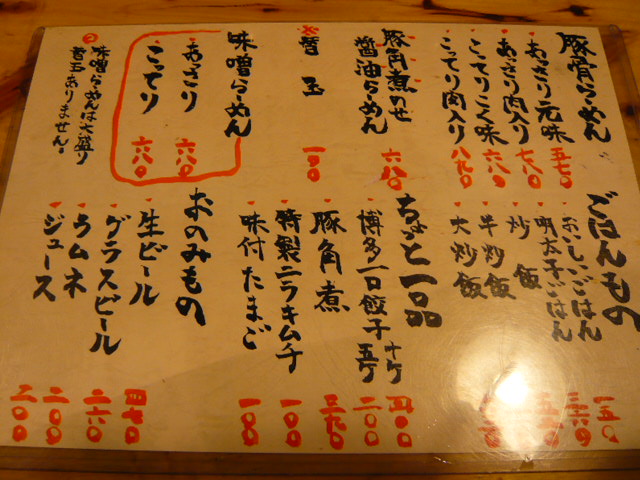 豚骨らーめん
あっさり元味 五七〇
あっさり肉入り 七八〇
こってりこく味 六八〇
こってり肉入り 八九〇
豚角煮のせ
醤油らーめん 六八〇
※替玉 一〇〇
味噌らーめん
あっさり 六八〇
こってり 六八〇
味噌らーめんは大盛り
替玉ありません。
ごはんもの
おいしいごはん 一五〇
明太子ごはん 三六〇
炒飯
半炒飯
大炒飯
ちょっと一品
博多一口餃子 十ケ 四〇〇
五ケ 二〇〇
豚角煮 三九〇
特製ニラキムチ 一〇〇
味付たまご 一〇〇
おのみもの
生ビール 四七〇
グラスビール 二六〇
ラムネ 二〇〇
ジュース 二〇〇